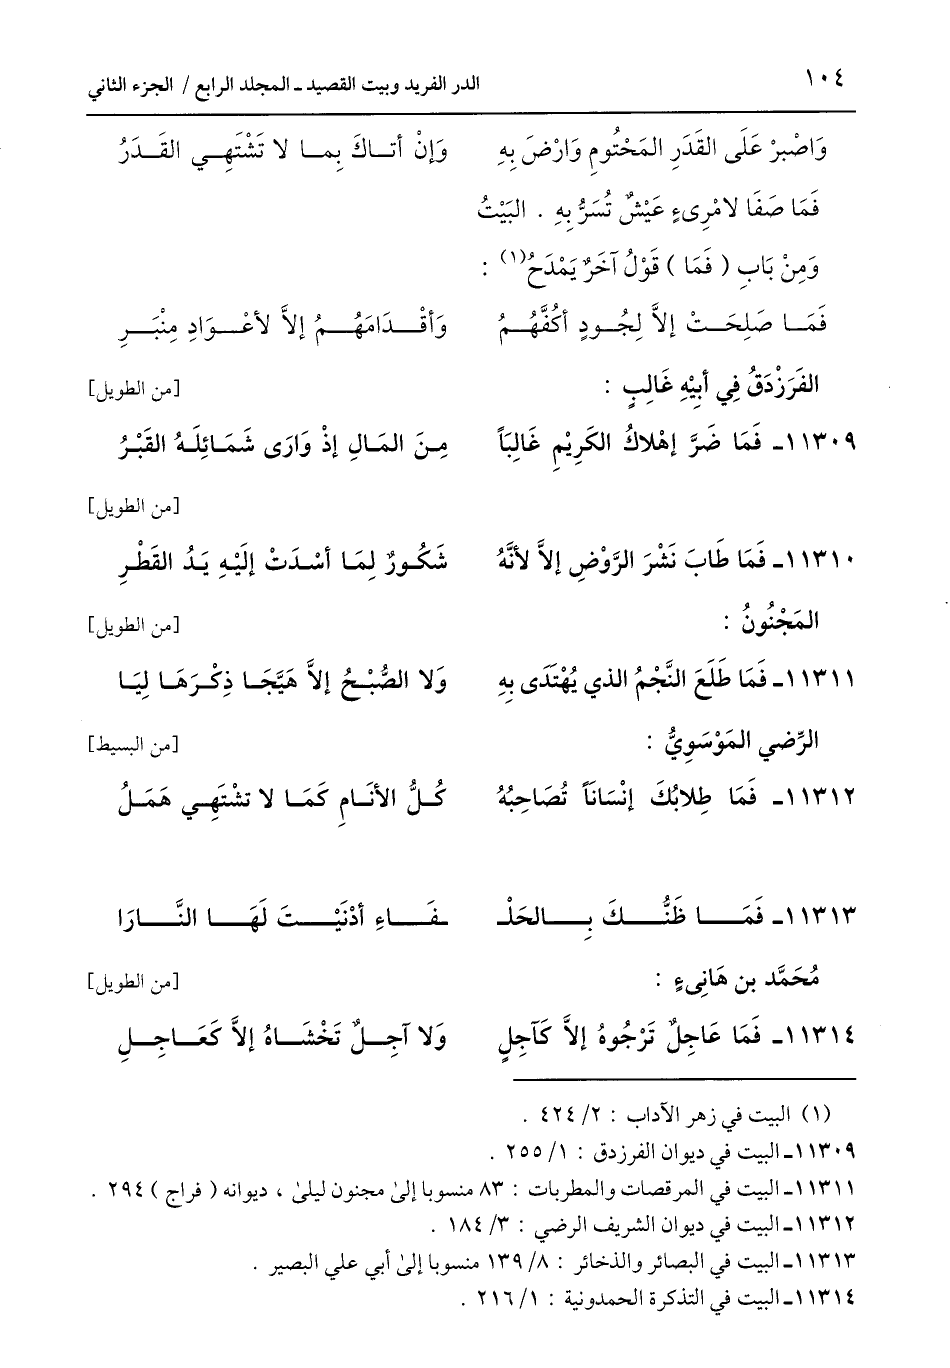 ١٠٤ الدر الفريد وبيت القصيد ـ المجلد الرابع / الجزء الثاني
وَاصْبِرْ عَلَى القَدَرِ المَحْتُومِ وَارْضَ بِهِ وَإنْ أتـاكَ بِمـا لا تَشْتَهِـي القَـدَرُ
فَمَا صَفَا لامْرِىءٍ عَيْشٌ تُسَرُّ بِهِ . البَيْتُ
وَمِنْ بَابِ ( فَمَا ) قَوْلُ آخَرٌ يَمْدَحُ(١) :
فَمَـا صَلِحَـتْ إلاَّ لِجُـودٍ أكُفَّهُـمُ وَأقْـدَامَهُـمُ إلاَّ لأعْـوَادِ مِنْبَـرِ
الفَرَزْدَقُ فِي أبِيْهِ غَالِبٍ : [من الطويل]
١١٣٠٩ـ فَمَا ضَرَّ إهْلاكُ الكَرِيْمِ غَالِبَاً مِـنَ المَالِ إذْ وَارَى شَمَائِلَـهُ القَبْـرُ
[من الطويل]
١١٣١٠ـ فَمَا طَابَ نَشْرَ الرَّوْضِ إلاَّ لأنَّهُ شَكُـورٌ لِمَـا أسْـدَتْ إلَيْـهِ يَـدُ القَطْـرِ
المَجْنُونُ : [من الطويل]
١١٣١١ـ فَمَا طَلَعَ النَّجْمُ الذي يُهْتَدَى بِهِ وَلا الصُّبْـحُ إلاَّ هَيَّجَـا ذِكْـرَهَـا لِيَـا
الرِّضي المَوْسَوِيُّ : [من البسيط]
١١٣١٢ـ فَمَا طِلابُكَ إنْسَانَاً تُصَاحِبُهُ كُـلُّ الأنَـامِ كَمَـا لا تشْتَهِـي هَمَـلُ
١١٣١٣ـ فَمَـا ظَنُّـكَ بِـالحَلْـ ـفَـاءِ أدْنَيْـتَ لَهَـا النَّـارَا
مُحَمَّد بن هَانِىءٍ : [من الطويل]
١١٣١٤ـ فَمَا عَاجِلٌ تَرْجُوهُ إلاَّ كَآجِلٍ وَلا آجِـلٌ تَخْشَـاهُ إلاَّ كَعَـاجِـلِ
(١) البيت في زهر الآداب : ٢/ ٤٢٤ .
١١٣٠٩ـ البيت في ديوان الفرزدق : ١/ ٢٥٥ .
١١٣١١ـ البيت في المرقصات والمطربات : ٨٣ منسوبا إلىٰ مجنون ليلىٰ ، ديوانه ( فراج ) ٢٩٤ .
١١٣١٢ـ البيت في ديوان الشريف الرضي : ٣/ ١٨٤ .
١١٣١٣ـ البيت في البصائر والذخائر : ٨/ ١٣٩ منسوبا إلىٰ أبي علي البصير .
١١٣١٤ـ البيت في التذكرة الحمدونية : ١/ ٢١٦ .